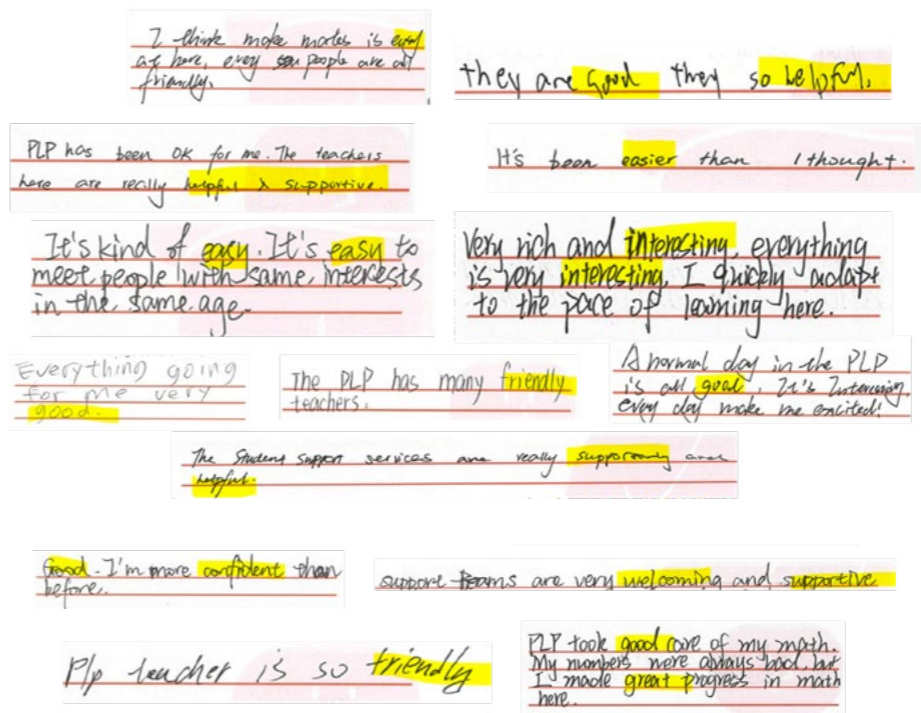 I think make mates is easy
at here, every people are all
friendly.
they are good they so helpful.
PLP has been OK for me. The teachers
here are really helpful & supportive.
It's been easier than I thought.
It's kind of easy. It's easy to
meet people with same interests
in the same age.
Very rich and interesting, everything
is very interesting, I quickly adapt
to the pace of learning here.
Everything going
for me very
good.
The PLP has many friendly
teachers.
A normal day in the PLP
is all good. It's
every day make me excited!
The Student Support services are really and
helpful.
Good. I'm more confident than
before.
support teams are very welcoming and supportive
Plp teacher is so friendly
PLP took good care of my math.
My numbers were always bad, but
I made great progress in math
here.